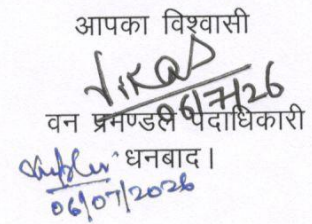 आपका विश्वासी
Vikas
06/7/26
वन प्रमण्डल पदाधिकारी
धनबाद।
06/07/2026